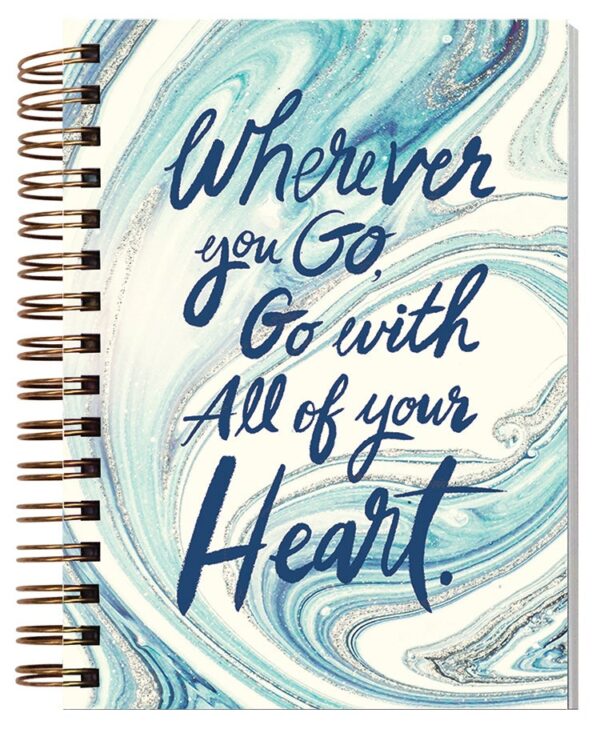 Wherever
you Go,
Go with
All of your
Heart.